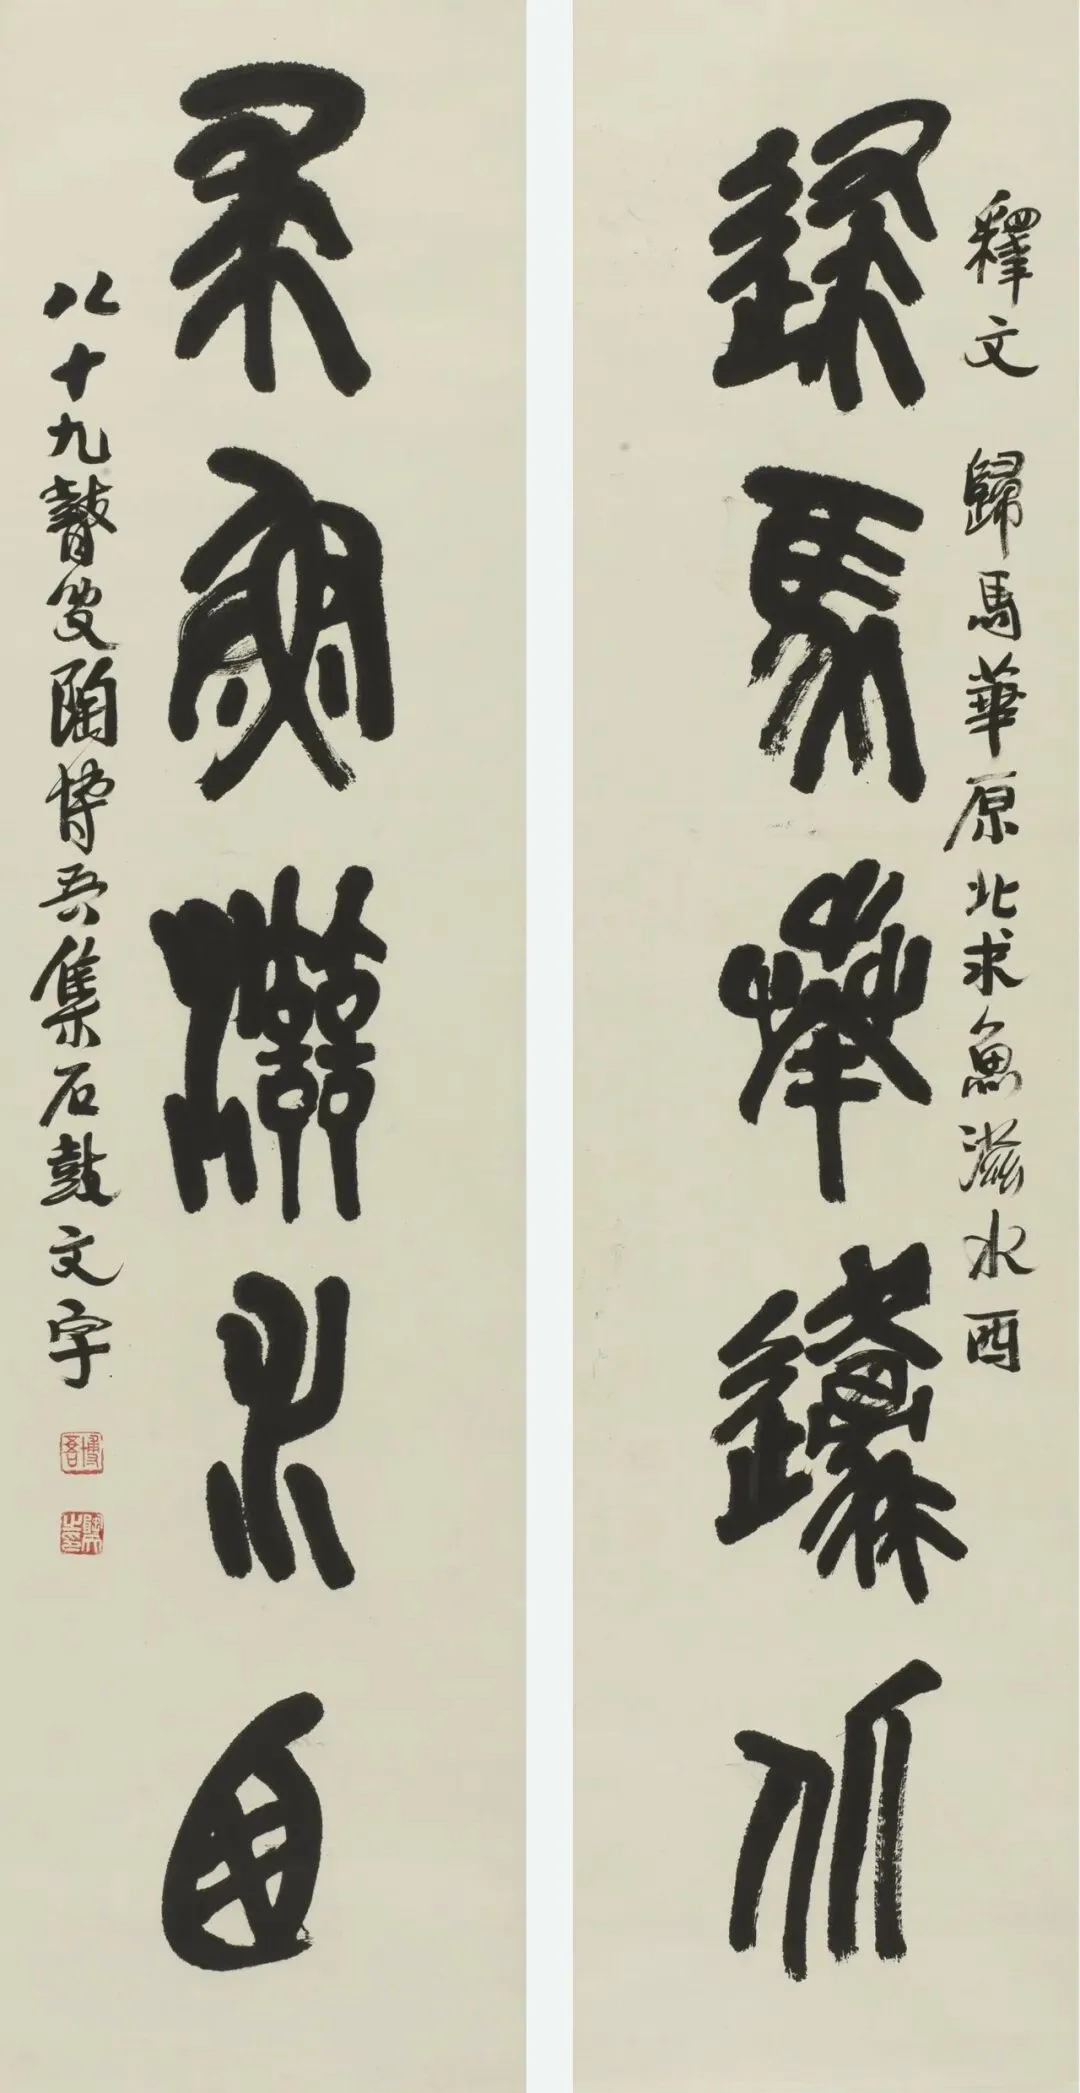 釋文 歸馬華原北求魚滋水西
歸馬華原北
求魚滋水西
八十九瞽叟陶博吾集石鼓文字
博吾